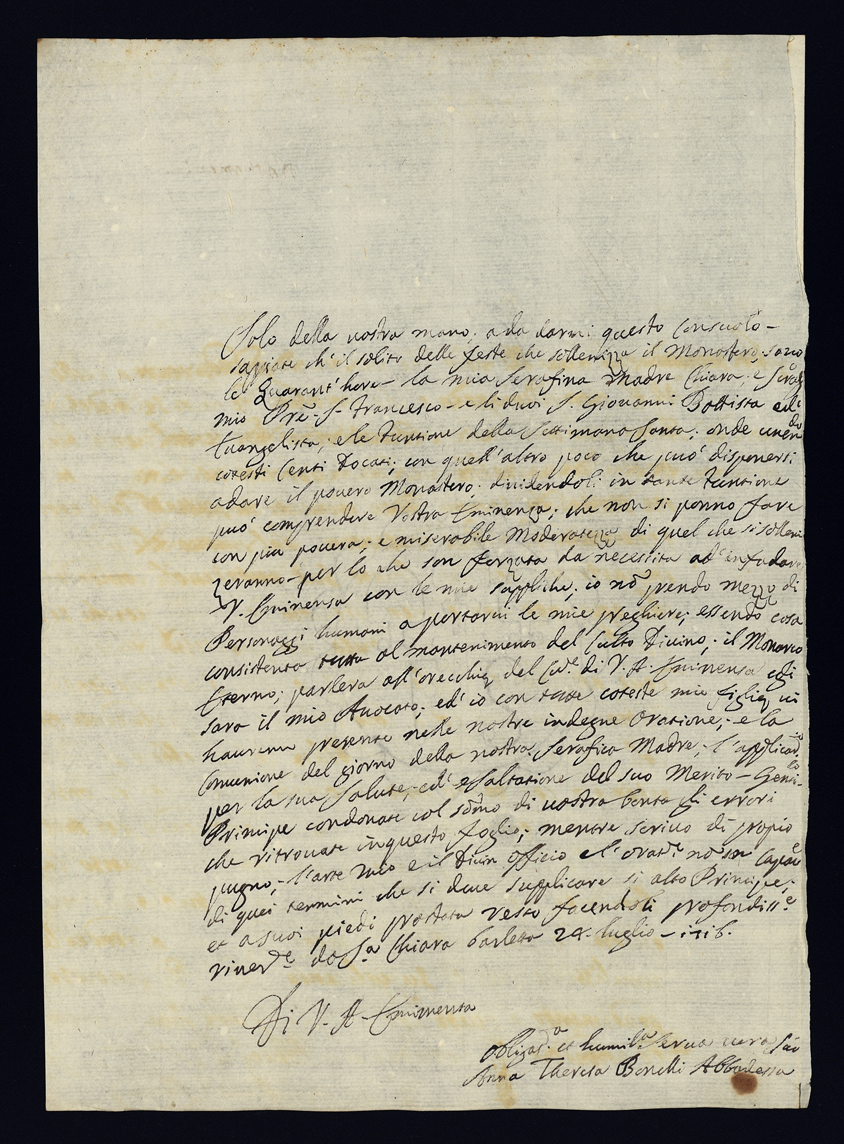 Solo della vostra mano, a da darmi questo Consuolo -
sapiate ch'il solito delle feste che sollenizza il Monastero, sono
le Quarant'hore - la mia Serafina Madre Chiara, e
mio Pre S. Francesco - e li duoi S. Giovanni Battista ed
Evangelista, e le Funtione della Settimana Santa; onde
cotesti Centi Docati, con quell'altro poco che può disponersi
a dare il povero Monastero, dividendoli in tante Funtione
può comprendere Vostra Eminensa, che non si ponno fare
con più povera, e miserabile Moderatezza di quel che si solleni
zeranno - per lo che son forzata da necessita ad' infadare
V. Eminensa con le mie suppliche, io nõ prendo mezzo di
Personaggi humani a portarvi le mie preghiere, essendo cosa
consistente tutta al mantenimento del Culto Divino, il Monarca
Eterno, parlera all'orecchie del di V. A. Eminensa egli
sara il mio Avocato, ed' io con tutte coteste mie figlie vi
haveremo presente nelle nostre indegne Oratione, e la
Comunione del giorno della nostra Serafica Madre, l'applicar
per la sua Salute, ed' esaltatione del suo Merito -
Principe condonate col sõmo di vostra bonta gli errori
che ritrovate in questo foglio, mentre scrivo di propio
pugno, l'arte mio e il Divin Officio e l'orat.e nõ son Capace
di quei termini che si deve supplicare si alto Principe,
et a suoi piedi prostata resto facendoli profondiss.e
river.e da S.a Chiara Barletta 24 luglio - 1716.
Di V. A. Eminenta
Obligat.a et humil.a Serva vera
Anna Theresa Bonelli Abbadessa